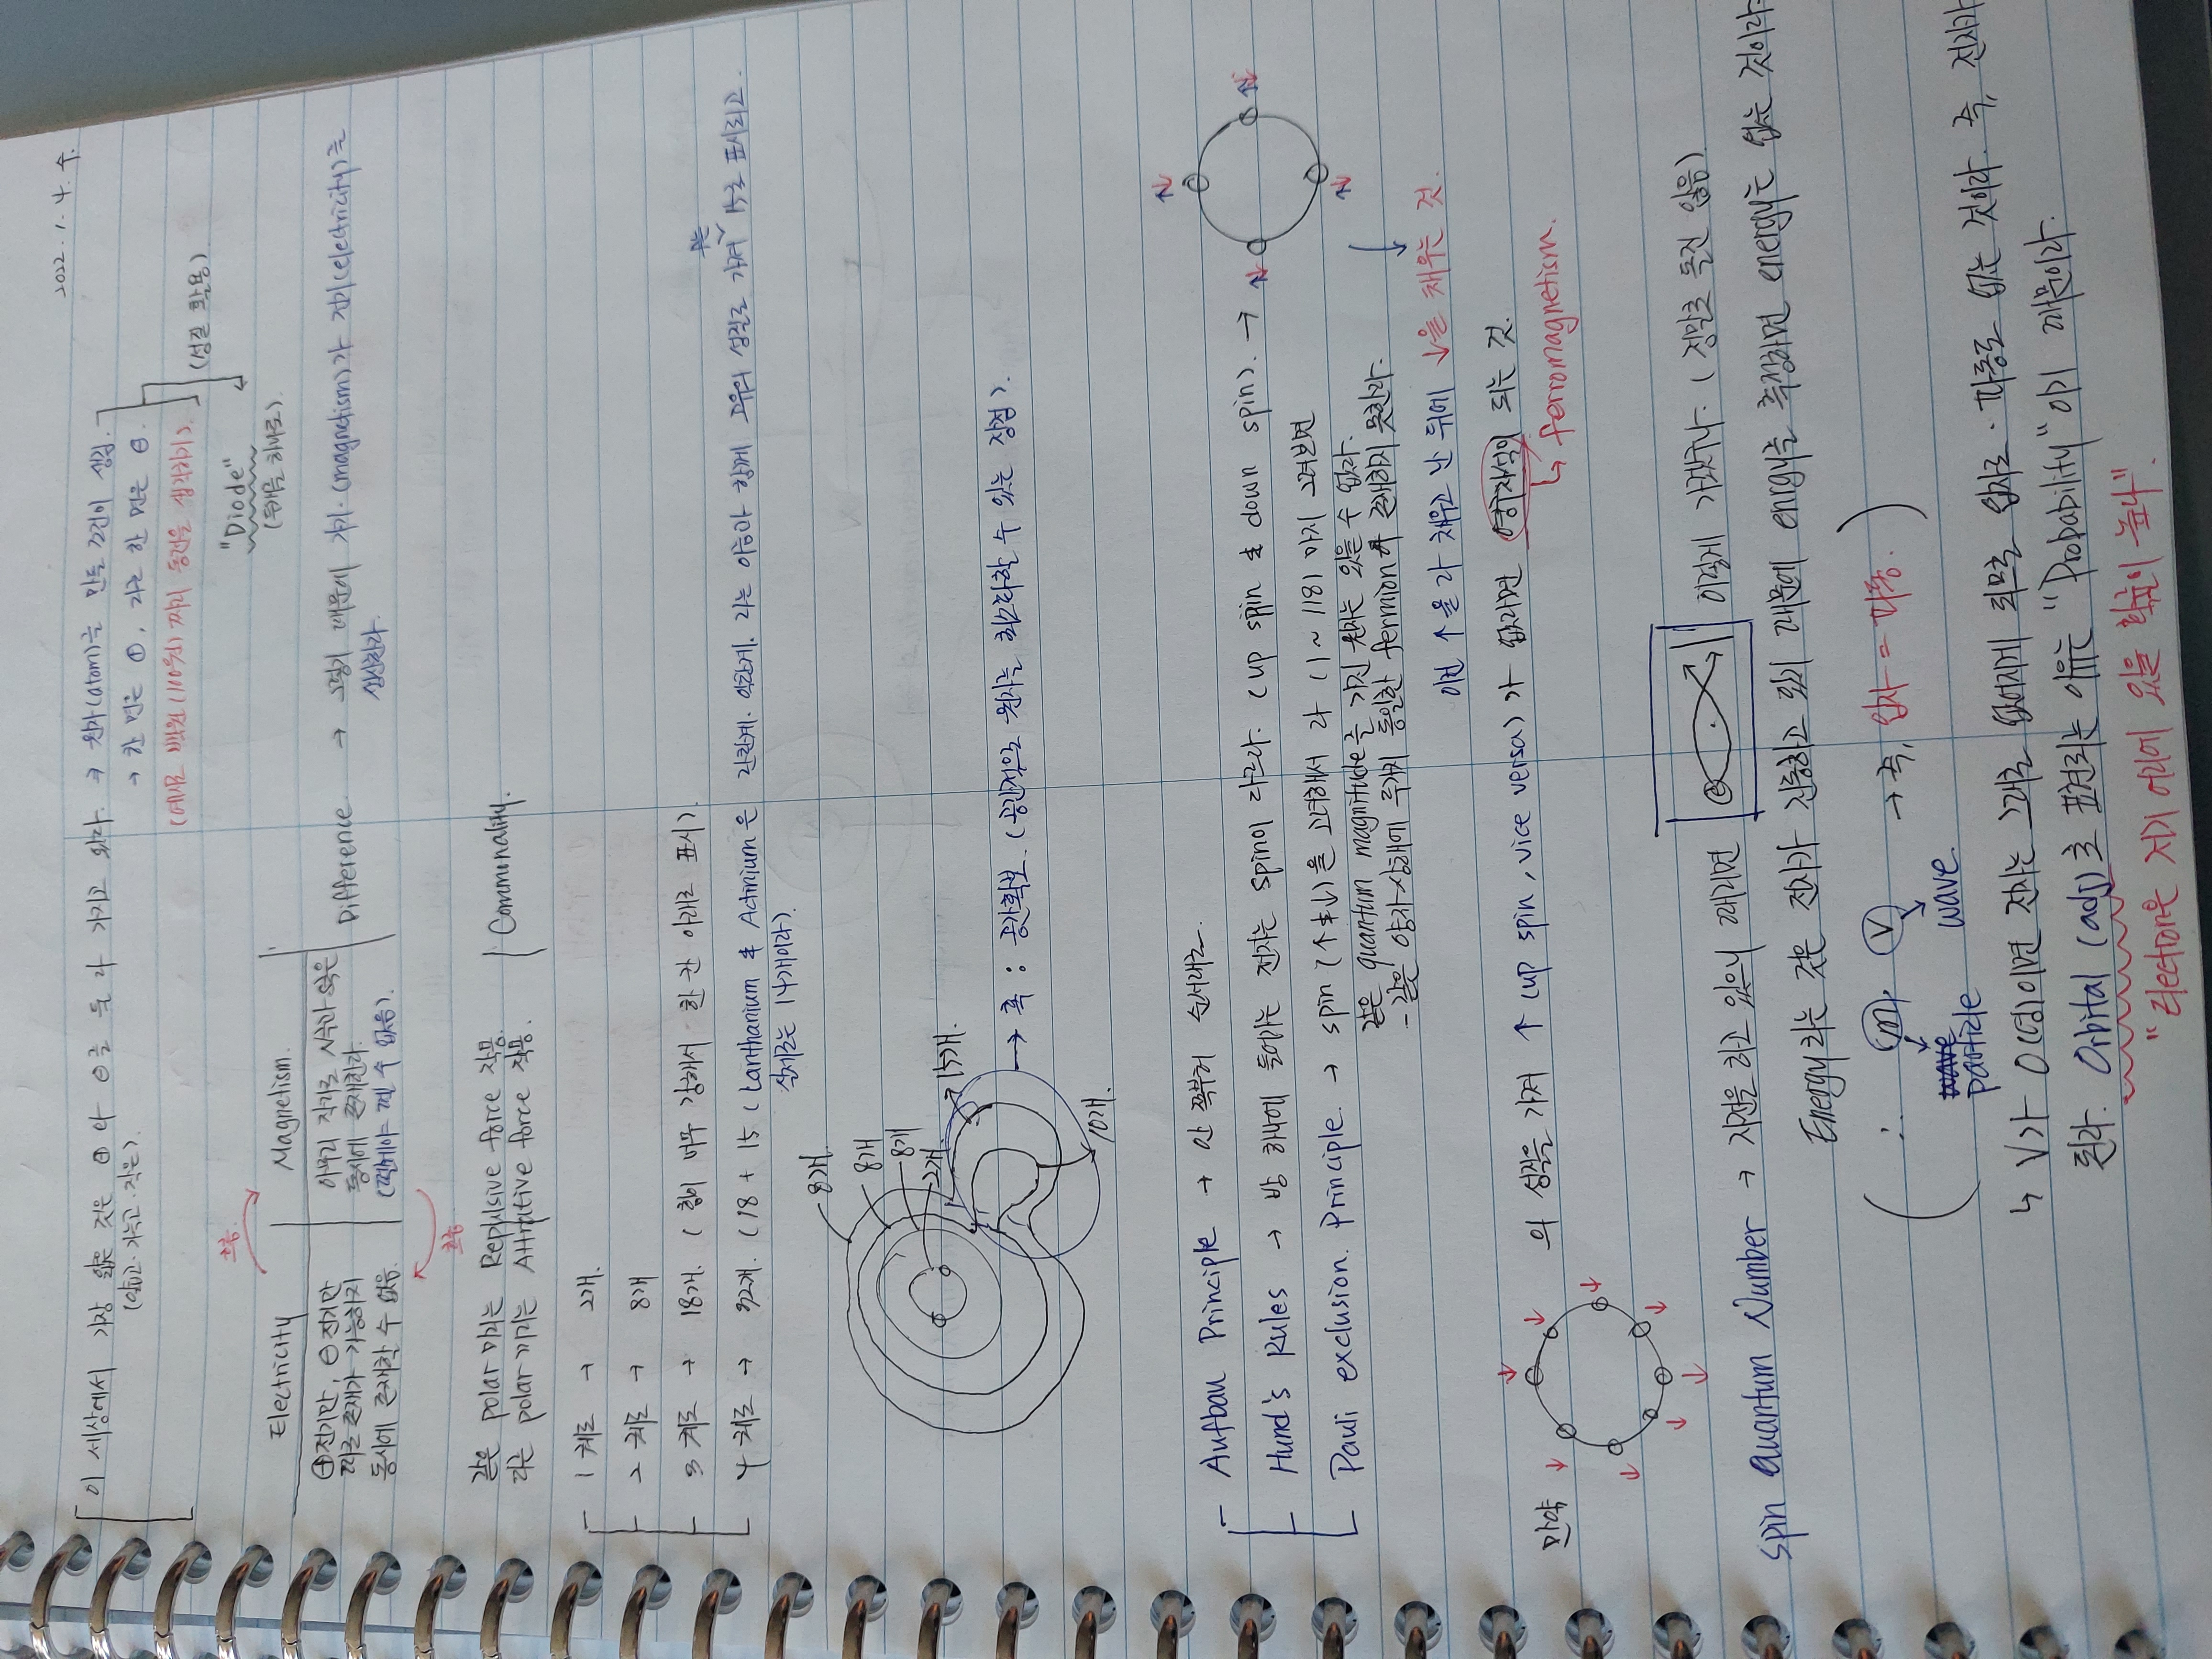 2022. 1. 4. 수.
이 세상에서 가장 얇은 것은 ⊕나 ⊖를 둘 다 가지고 있다. → 원자(atom)는 만들 조건이 생김.
(얇고·가늘고·작은). → 한 면은 ⊕, 다른 한 면은 ⊖.
(예시로 백원(100원)짜리 동전을 생각하기). (성질 활용)
"Diode"
(두께를 해체로).
흐름.
Electricity Magnetism.
⊕전기만, ⊖전기만 아무리 작게 시작과 S극은 Difference → 그렇기 때문에 자기(magnetism)가 전기(electricity)를
따로 존재가 가능하지 동시에 존재한다. 상실한다.
동시에 존재할 수 없음. (쪼개야 쪼갤 수 없음).
흐름
같은 polar 끼리는 Replusive force 작용. Communality.
다른 polar 끼리는 Attrative force 작용.
1 궤도 → 2개.
2 궤도 → 8개
3 궤도 → 18개. (힘이 너무 강해서 한 칸 아래로 표시).
4 궤도 → 32개. (18 + 15 (Lanthanium & Actinium은 란탄계. 악탄계. 라는 이름아 함께 고유의 성질로 가져 15로 표시되고
실제로는 14개이다).
8개.
8개
8개
2개.
15개.
10개.
→ 혹 : 공간확보. (공간적으로 원자는 최소화할 수 있는 장점).
Aufbau Principle → 안 쪽부터 순서대로.
Hund's Rules → 방 하나에 들어가는 전자는 spin이 다르다. (up spin & down spin). →
Pauli exclusion. Principle. → spin (↑&↓)을 고려해서 다 (1 ~ 118) 까지 그려보면
같은 quantum magnitude를 가진 원자는 있을 수 없다.
- 같은 양자상태에 두개의 동일한 fermion이 존재하지 못한다.
이건 ↑을 다 채우고 난 뒤에 ↓을 채우는 것.
만약 의 성질을 가져 ↑ (up spin, vice versa)가 없다면 영구자석이 되는 것.
↳ ferromagnetism.
Spin Quantum Number → 자전을 하고 있으니 때리면 이렇게 가겠구나. (정말로 돌진 않음).
Energy라는 것은 전자가 진동하고 있기 때문에 energy를 측정하면 energy는 없는 것이다.
∴ (m, v) → 즉, 입자 = 파동.
particle wave.
↳ v가 0(영)이면 전자는 그대로 없어지게 되므로 입자로·파동로 없는 것이다. 즉, 전자가
된다. Orbital (adj)로 표현되는 이유는 "Probability"이기 때문이다.
"electron은 저기 어디에 있을 확률이 높다".